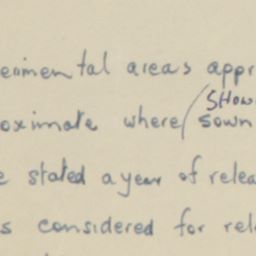 perimental areas appr
show
oximate where sown
e stated a year of relea
s considered for rel